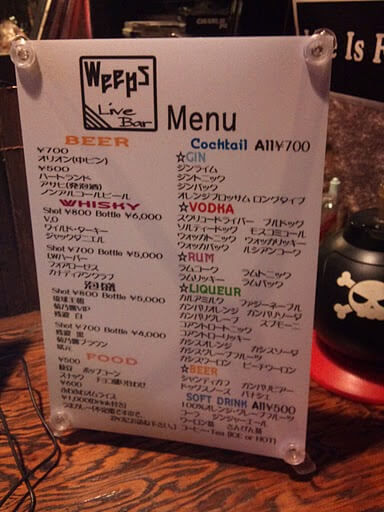 Weeps
Live
Bar
Menu
Is F
BEER
¥700
オリオン(中ビン)
¥500
ハートランド
アサヒ(発泡酒)
ノンアルコールビール
WHISKY
Shot ¥800 Bottle ¥6,000
V.O
ワイルド・ターキー
ジャックダニエル
Shot ¥700 Bottle ¥5,000
I.Wハーパー
フォアローゼス
カナディアンクラブ
泡盛
Shot ¥800 Bottle ¥5,000
琉球王朝
菊乃露VIP
残波 白
Shot ¥700 Bottle ¥4,000
残波 黒
菊乃露ブラウン
FOOD
¥500
枝豆 ポップコーン
スナック チョコ盛り合わせ
¥600
オムライス
¥1,000(Drink付き)
Cocktail All¥700
☆GIN
ジンライム
ジントニック
ジンバック
オレンジブロッサム ロングタイプ
☆VODKA
スクリュードライバー ブルドッグ
ソルティードッグ モスコミュール
ウォッカトニック ウォッカリッキー
ウォッカバック ルシアンコーク
☆RUM
ラムコーク ラムトニック
ラムリッキー ラムバック
☆LIQUEUR
カルアミルク ファジーネーブル
カンパリオレンジ カンパリソーダ
カンパリグレープフルーツ スプモーニ
コアントロートニック
コアントローリッキー
カシスオレンジ カシスソーダ
カシスグレープフルーツ
カシスウーロン ピーチウーロン
☆BEER
シャンディガフ カンパリビアー
ドッグズノーズ パナシェ
SOFT DRINK All¥500
100%オレンジ・グレープフルーツ
コーラ ジンジャーエール
ウーロン茶 さんぴん茶
コーヒー・Tea (ICE or HOT)